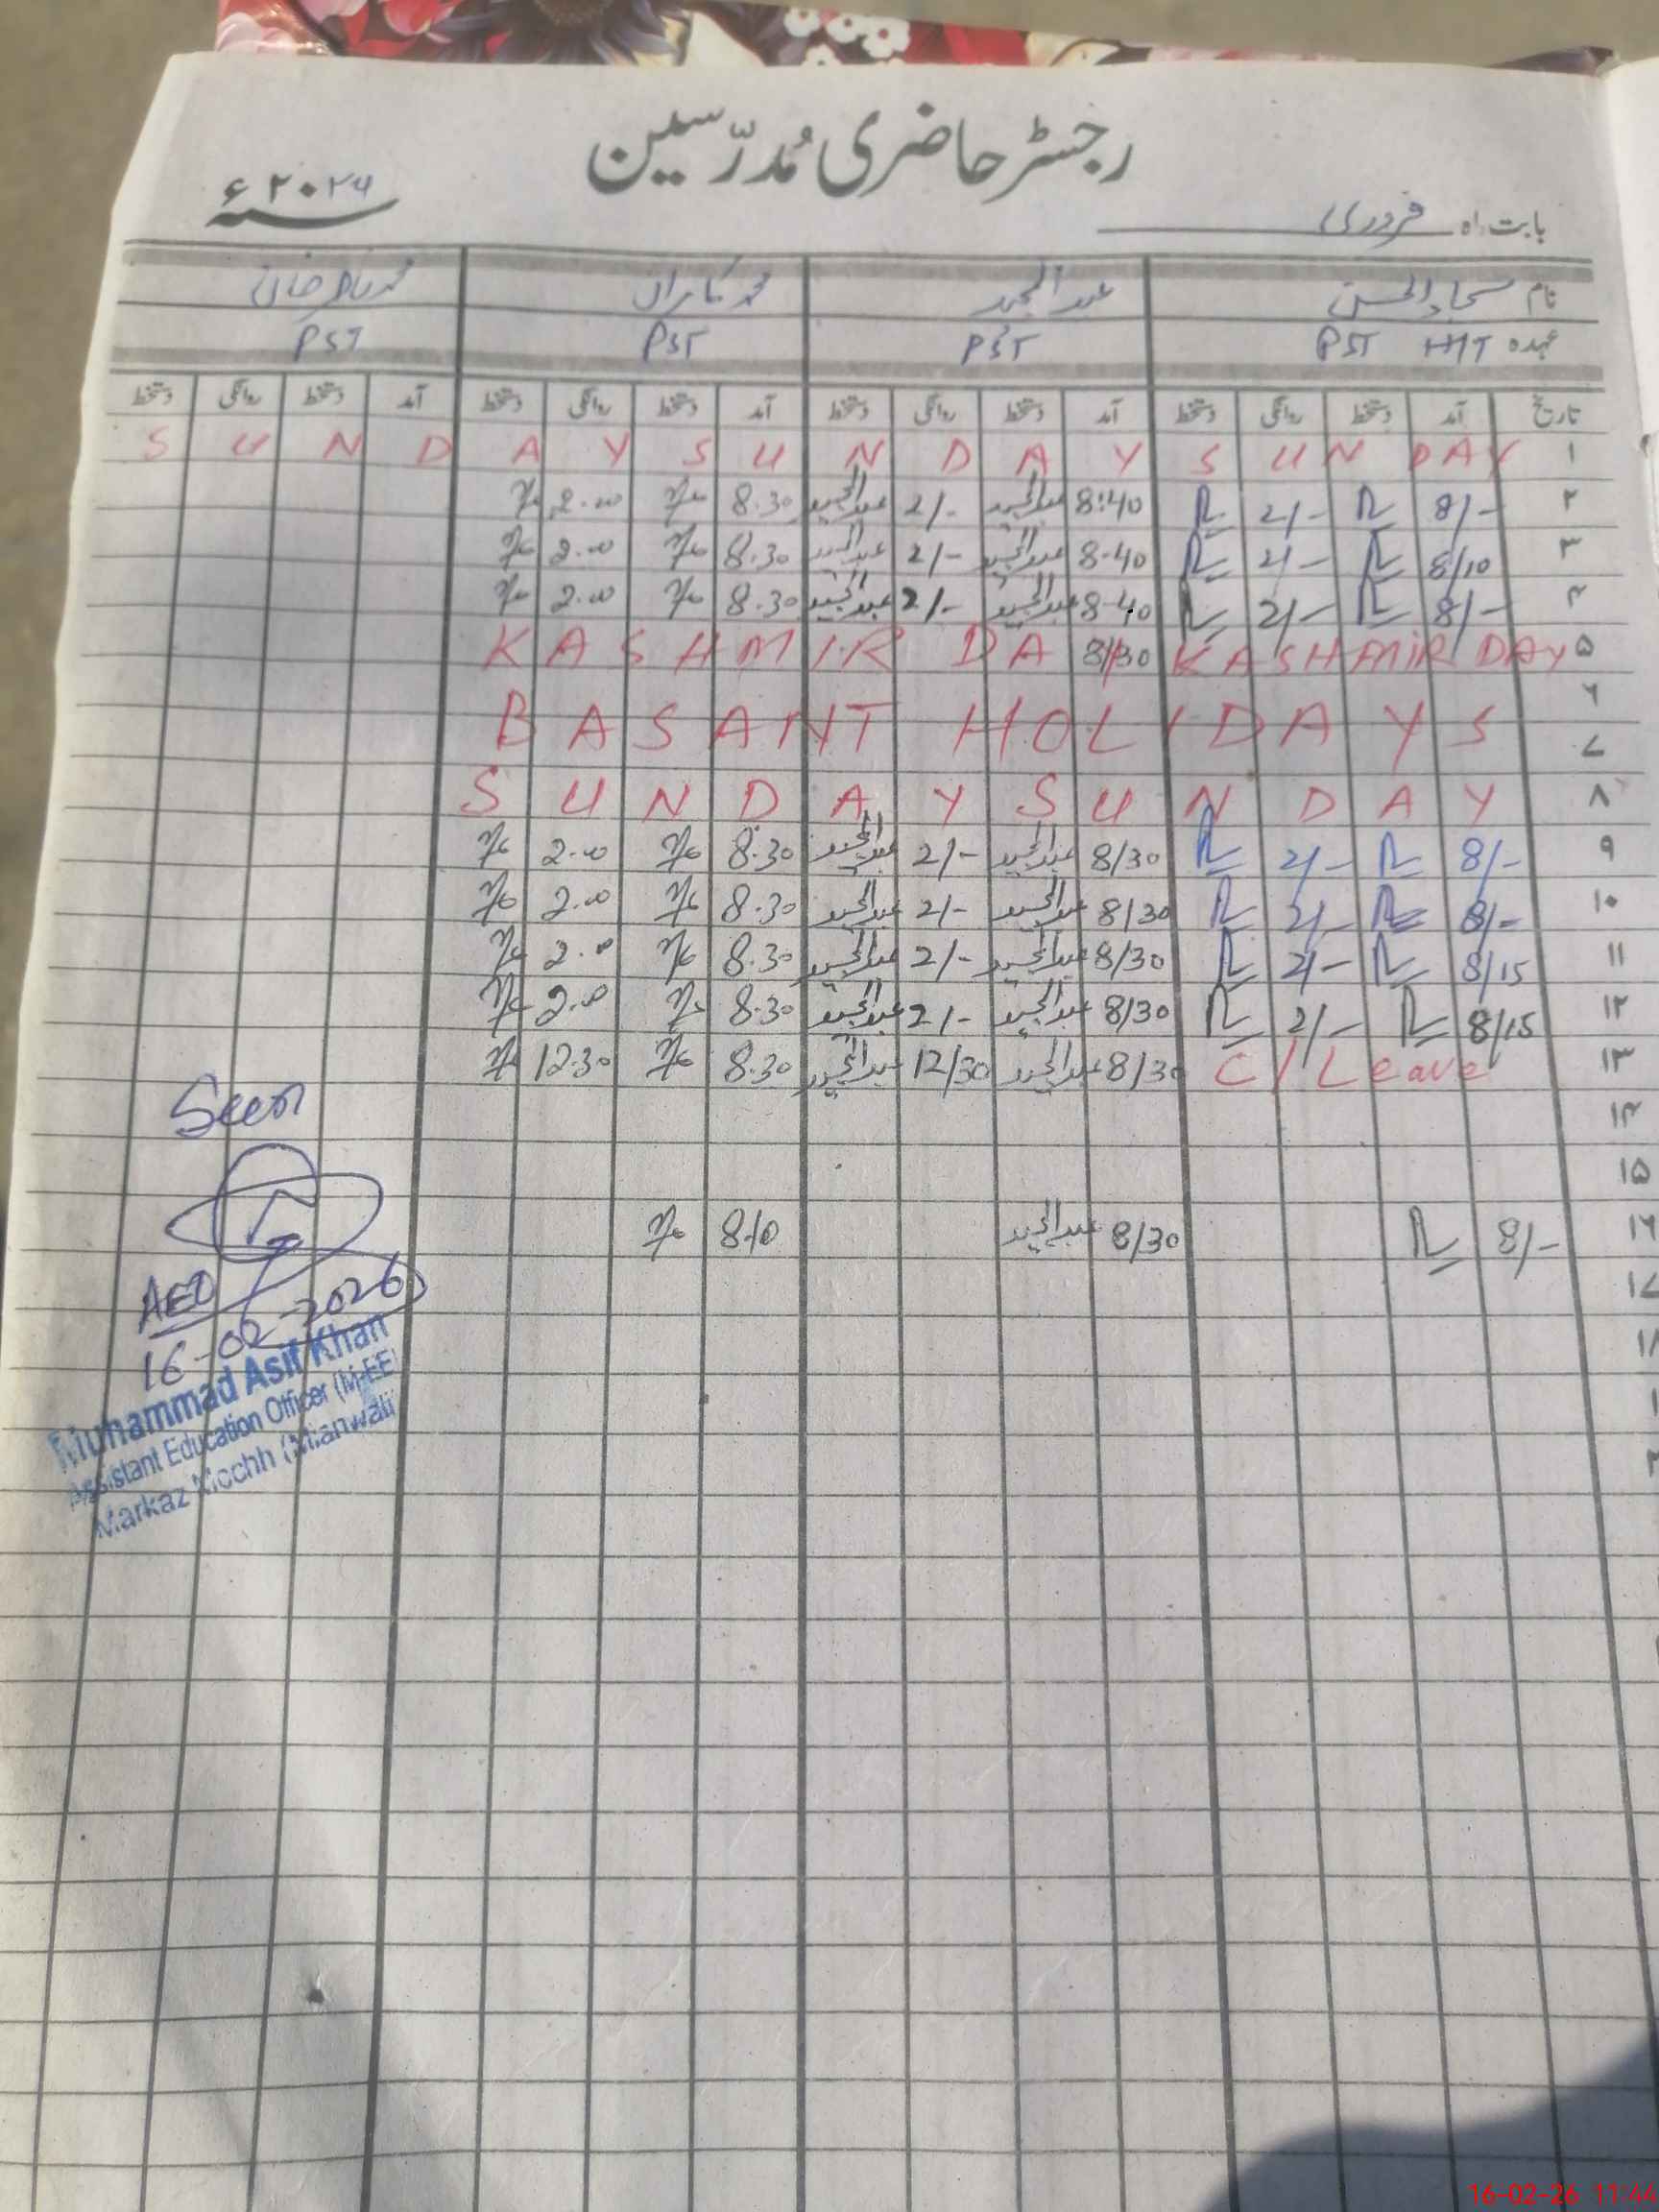 رجسٹر حاضری مُدرّسین
بابت ماہ فروری ۲۰۲۶ء
نام سجاد الحسن عبدالمجید محمد کامران محمد ناصر خان
عہدہ PST HIT PST PST PST
تاریخ آمد دستخط روانگی دستخط آمد دستخط روانگی دستخط آمد دستخط روانگی دستخط آمد دستخط روانگی دستخط
۱ S U N D A Y S U N D A Y S U N D A Y
۲ 8/- 2/- 8:40 عبدالمجید 2/- عبدالمجید 8.30 2.00
۳ 8/10 2/- 8-40 عبدالمجید 2/- عبدالمجید 8.30 2.00
۴ 8/- 2/- 8-40 عبدالمجید 2/- عبدالمجید 8.30 2.00
۵ K A S H M I R D A 8/30 K A S H M I R D A Y
۶ B A S A N T H O L I D A Y S
۷
۸ S U N D A Y S U N D A Y
۹ 8/- 2/- 8/30 عبدالمجید 2/- عبدالمجید 8.30 2.00
۱۰ 8/- 2/- 8/30 عبدالمجید 2/- عبدالمجید 8.30 2.00
۱۱ 8/15 2/- 8/30 عبدالمجید 2/- عبدالمجید 8.30 2.00
۱۲ 8/15 2/- 8/30 عبدالمجید 2/- عبدالمجید 8.30 2.00
۱۳ C/Leave 8/30 عبدالمجید 12/30 عبدالمجید 8.30 12.30
۱۴
۱۵
۱۶ 8/- 8/30 عبدالمجید 8.10
۱۷
Seen
AEO
16-02-2026
Muhammad Asif Khan
Assistant Education Officer (M-EE
Markaz (Mianwali
16-02-26 11:44